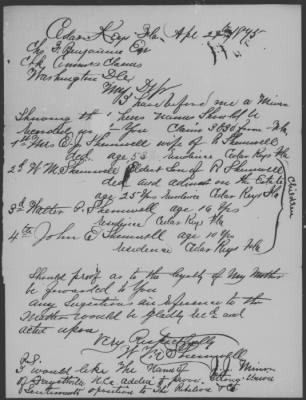 Cedar Keys Fla. Apl 29th 1875
Chs F. Benjamine Esq
Clk Commrs Claims
Washington D.C.
My Dr Sir
I have before me a
Showing the heirs names should be
to You Claim 5830 from Fla
1st Mrs E. J. Shemwell wife of R Shemwell
decd age 53 residence Cedar Keys Fla
2d W. M. Shemwell Eldest Son of R Shemwell
decd and admstr on the Estate
age 25 Yrs residence Cedar Keys Fla
3d Walter P. Shemwell age 16 Yrs
residence Cedar Keys Fla
4th John E Shemwell age 10 Yrs
residence Cedar Keys Fla
Children
Should proof as to the loyalty of My Mother
be forwarded to You
Any Sugestion in reference to the
Matter would be gladly recd and
acted upon
Very Respectfully
W. M. Shemwell
P.S.
I would like the Name of J. J. Minor
of Fayetteville N.C. added to prove Strong Union
Sentiments opposition to the Rebellion &c